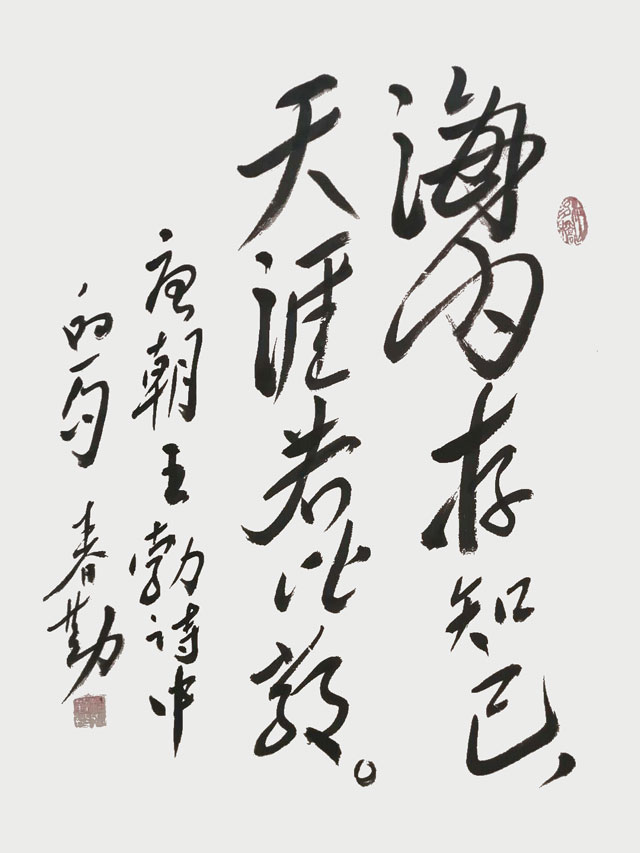 海内存知己，
天涯若比邻。
唐朝王勃诗中
的一句 春勤